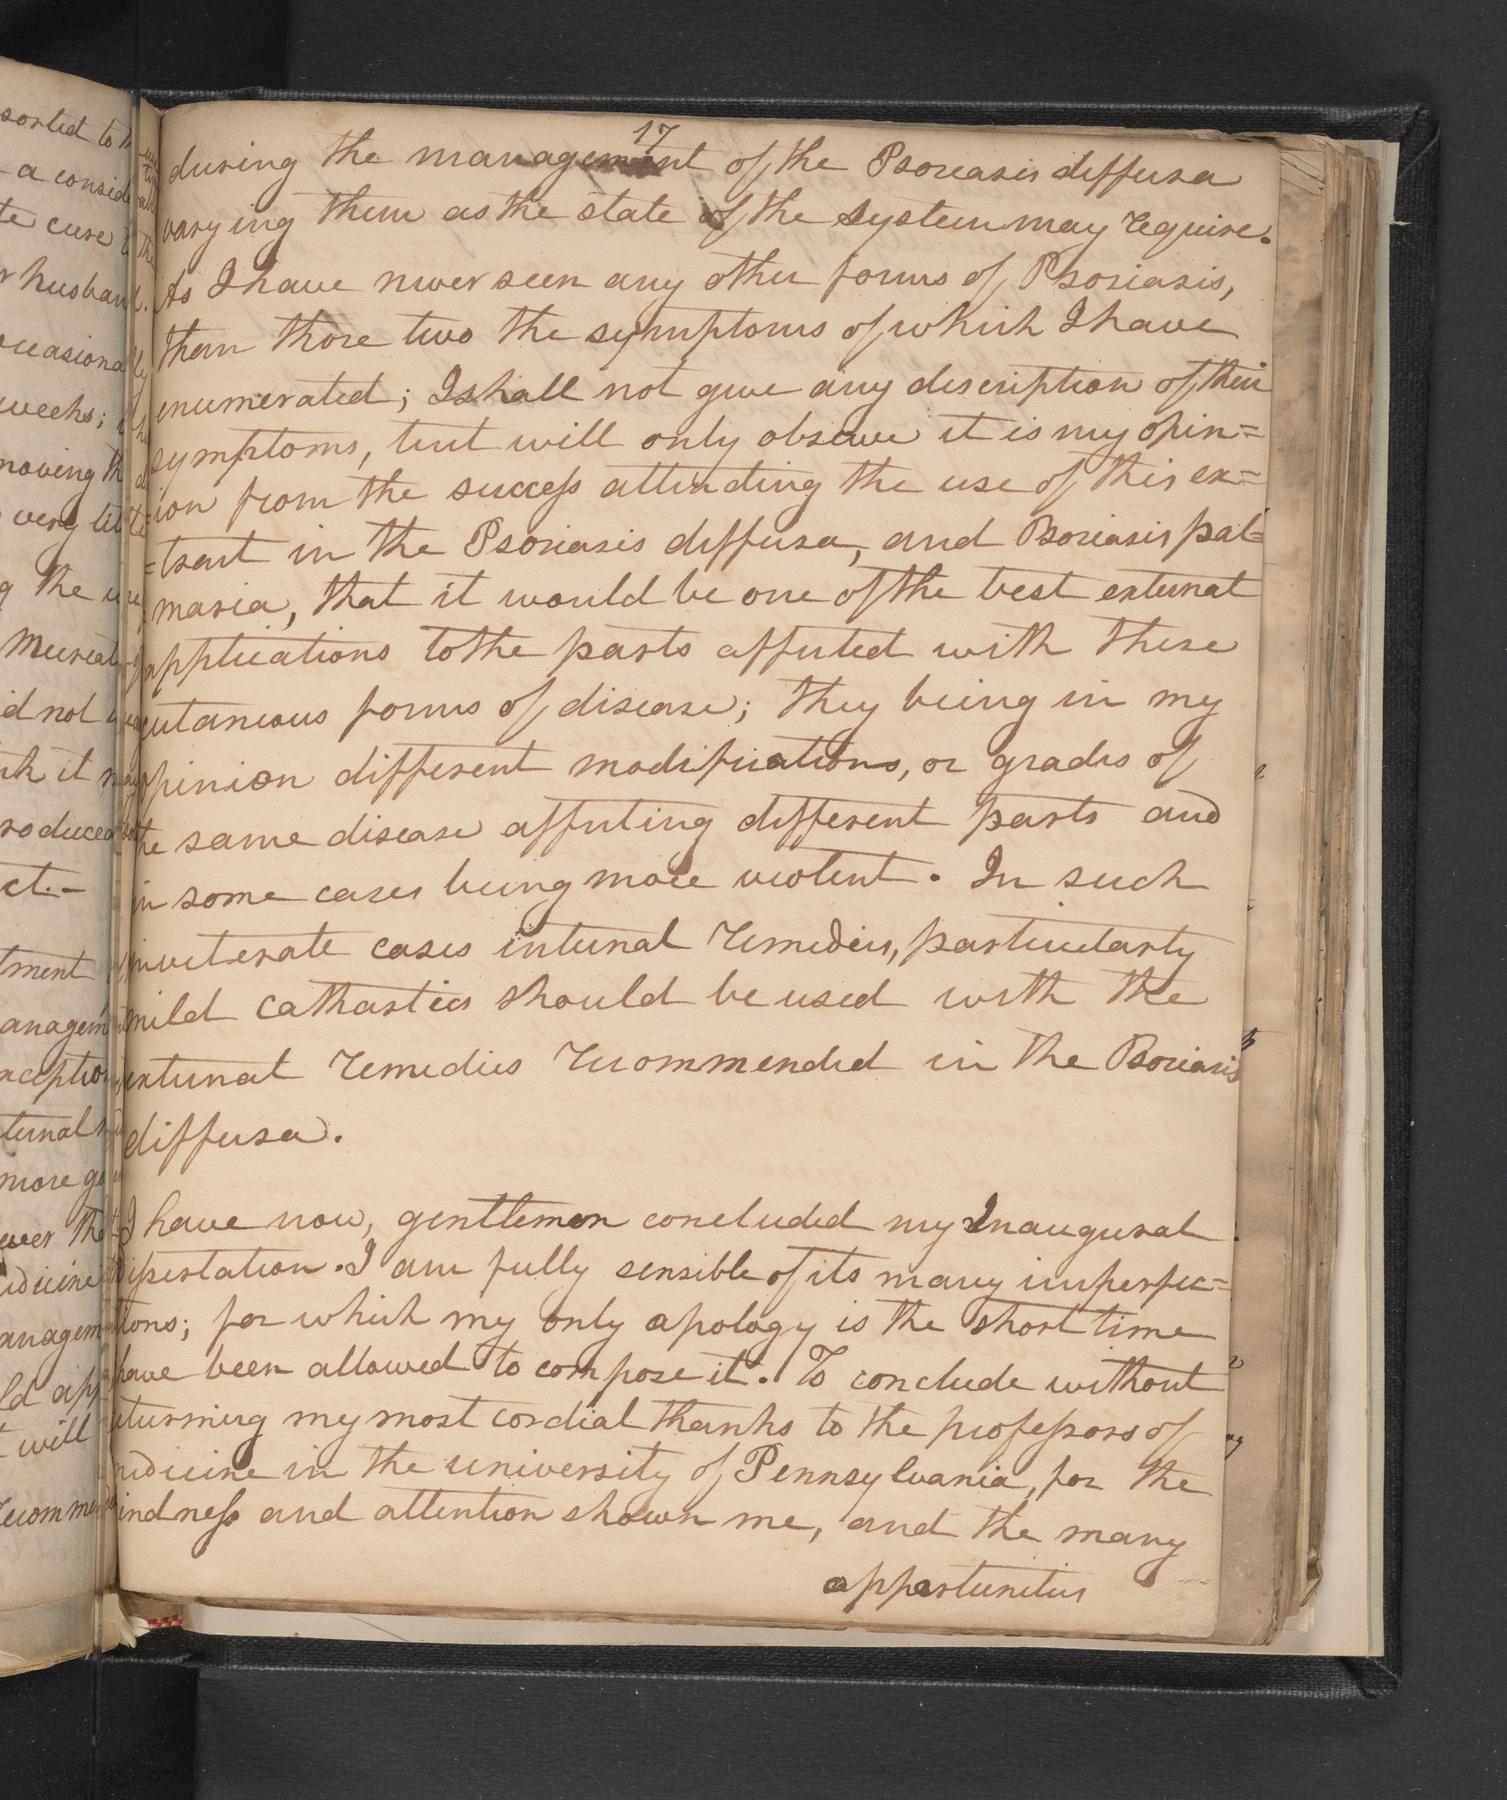 17
during the management of the Psoriasis diffusa
varying them as the state of the system may require.
As I have never seen any other forms of Psoriasis,
than those two the symptoms of which I have
enumerated; I shall not give any description of their
symptoms, but will only observe it is my opin=
ion from the success attending the use of this ex=
=tract in the Psoriasis diffusa, and Psoriasis pal=
maria, that it would be one of the best external
applications to the parts affected with these
cutaneous forms of disease; they being in my
opinion different modifications, or grades of
the same disease affecting different parts and
in some cases being more violent. In such
inveterate cases internal remedies, particularly
mild cathartics should be used with the
external remedies recommended in the Psoriasis
diffusa.
I have now, gentlemen concluded my Inaugural
dissertation. I am fully sensible of its many imperfec=
tions; for which my only apology is the short time
have been allowed to compose it. To conclude without
returning my most cordial thanks to the professors of
medicine in the university of Pennsylvania, for the
kindness and attention shown me, and the many
oppertunities